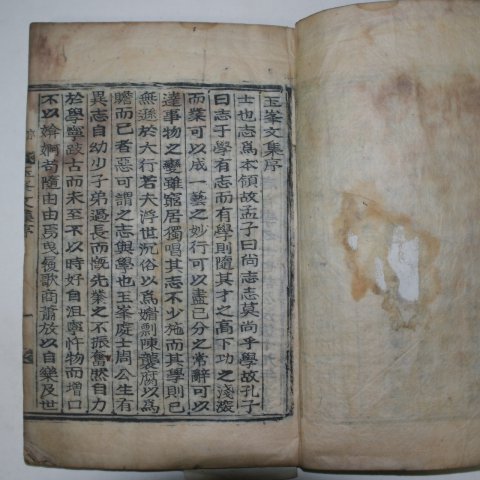 玉峯文集序
士也志爲本領故孟子曰尚志志莫尚乎學故孔子
曰志于學有志而有學則隨其才之高下功之淺深
而業可以成一藝之妙行可以盡已分之常辭可以
達事物之變雖窮居獨唱其志不少施而其學則已
無遜於大行若夫浮世沉俗以爲媚剽陳襲腐以爲
贍而已者惡可謂之志與學也玉峯處士周公生有
異志自幼少子弟過長而慨先業之不振奮然自力
於學寧敲古而未至不以時好自沮寧忤物而增口
不以媕婀苟隨由由焉曳履歌商蕭放以自樂及世
玉峯文集序